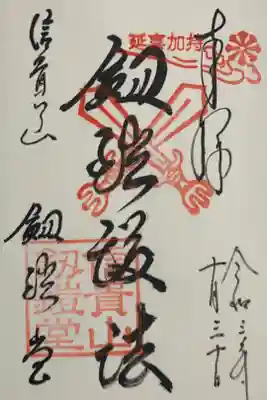 奉拝
令和三年
十月三十日
延喜加持
劔鎧護法
信貴山
劔鎧堂
信貴山
劔鎧堂